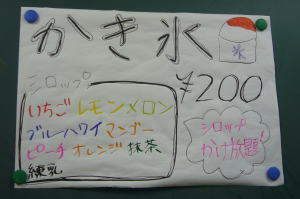 かき氷
氷
シロップ
¥200
いちご レモン メロン
ブルーハワイ マンゴー
ピーチ オレンジ 抹茶
練乳
シロップ
かけ放題!